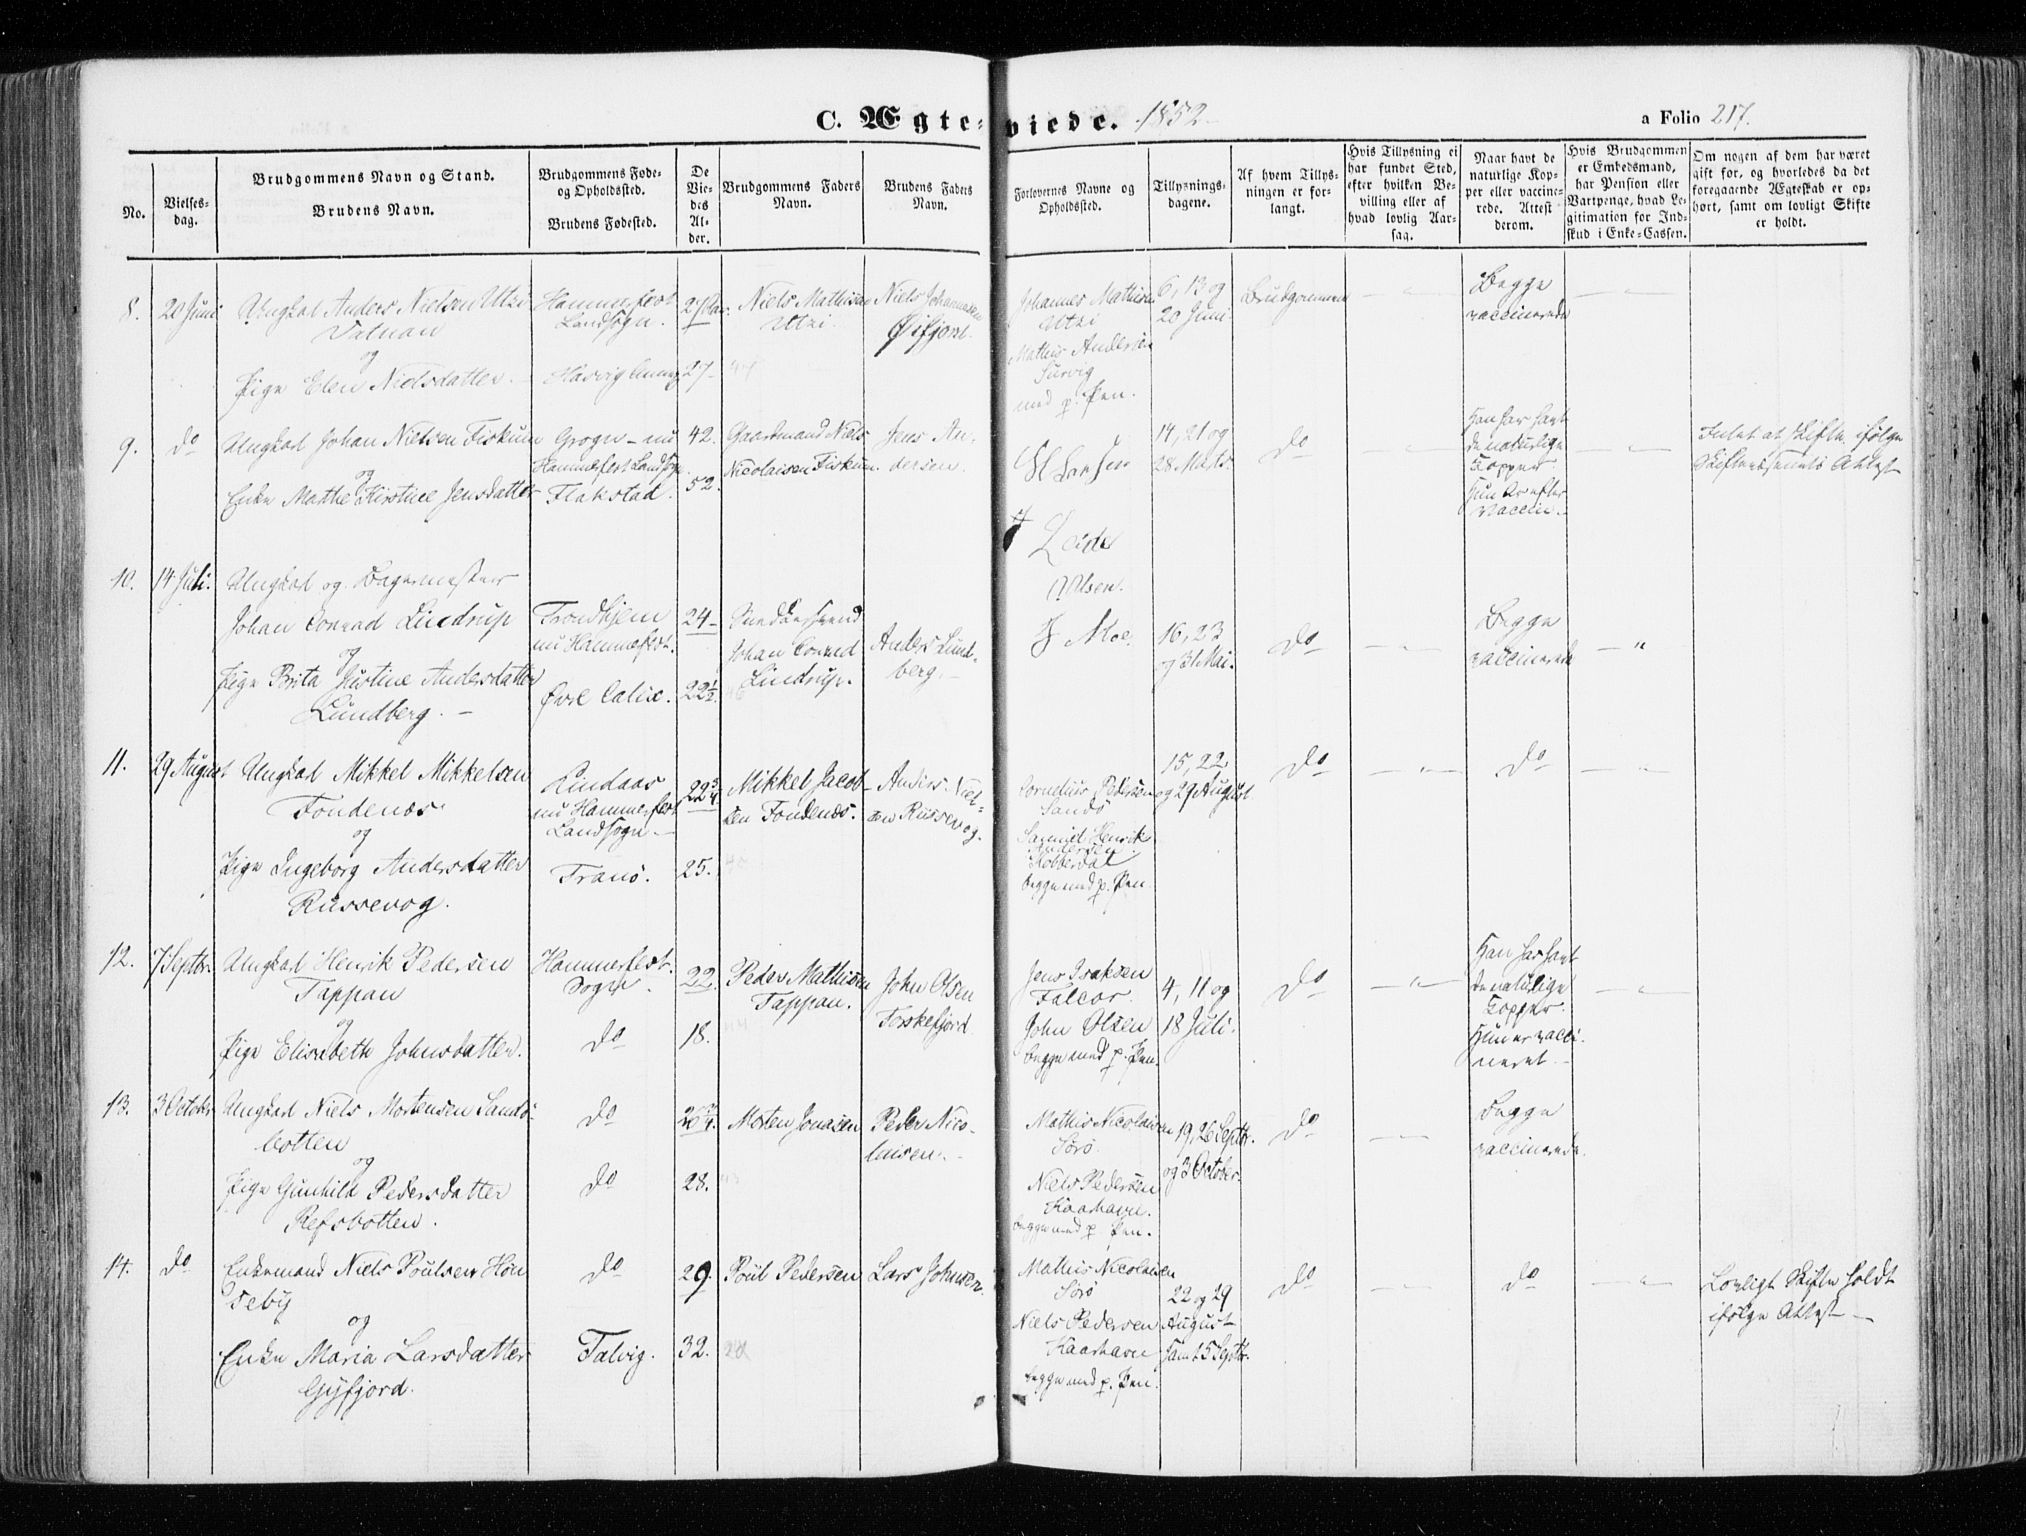 C. Ægte-viede. 1852
a Folio 217.
No.
Vielses-
dag.
Brudgommens Navn og Stand.
Brudens Navn.
Brudgommens Føde-
og Opholdssted.
Brudens Fødested.
De
Vie-
des
Al-
der.
Brudgommens Faders
Navn.
Brudens Faders
Navn.
Forlovernes Navne og
Opholdssted.
Tillysnings-
dagene.
Af hvem Tillys-
ningen er for-
langt.
Hvis Tillysning ei
har fundet Sted,
efter hvilken Be-
villing eller af
hvad lovlig Aar-
sag.
Naar havt de
naturlige Kop-
per eller vaccine-
rede. Attest
derom.
Hvis Brudgommen
er Embedsmand,
har Pension eller
Vartpenge, hvad Le-
gitimation for Ind-
skud i Enke-Cassen.
Om nogen af dem har været
gift før, og hvorledes da det
foregaaende Ægteskab er op-
hørt, samt om lovligt Skifte
er holdt.
8. 20 Juni
Ungkal Anders Nielsen Utzi
og
Pige Elen Nielsdatter
Hammerfest
Landsogn.
27
27
Niels Mathisen
Utzi.
Niels Johannesen
Øifjord.
Johannes Mathisen
Utzi
Mathis Andersen
Survig
med p. Pen.
6, 13 og
20 Juni
Brudgommen
Begge
vaccinerede
9. do
Ungkal Johan Nielsen Fiskum
og
Enke Marthe Kirstine Jensdatter
Grogn - nu
Hammerfest Landsogn.
Flakstad.
42.
52.
Gaardmand Niels
Nicolaisen Fiskum.
Jens An-
dersen.
14, 21 og
28 Marts
do
Han har havt
de naturlige
Kopper
Hun er efter
vaccin.
Intet at skifte ifølge
Skifterettens Attest
10. 14 Juli.
Ungkal og Bagermester
Johan Conrad Lindrup
og
Pige Brita Justine Andersdatter
Lundberg.
Trondhjem
nu Hammerfest.
Øvre Calix.
24
22½
Johan Conrad
Lindrup.
Anders Lund-
berg.
Olsen.
Moe.
16, 23
og 31 Mai.
do
Begge
vaccinerede
11. 29 August
Ungkal Mikkel Mikkelsen
Fondenæs
og
Pige Ingeborg Andersdatter
Russevog.
Lindaas
nu Hammerfest
Landsogn
Tranö.
22¾
25.
Mikkel Jacob-
sen Fondenæs.
Anders Niel-
sen Russevog.
Cornelius Pedersen
Sandö
Samuel Henrik
Andersen
Kobberdal
begge med p. Pen.
15, 22
og 29 August
do
do
12. 7 Septbr.
Ungkarl Henrik Pedersen
Tappan
og
Pige Elisabeth Johnsdatter.
Hammerfest
Sogn.
do
22.
18.
Peder Mathisen
Tappan.
John Olsen
Torskefjord
Jens Isaksen
Falcor.
John Olsen
begge med p. Pen.
4, 11 og
18 Juli.
do
Han har havt
de naturlige
Kopper.
Hun er vacci-
neret.
13. 3 October
Ungkarl Niels Mortensen Sandö-
botten
og
Pige Gunhild Pedersdatter
Refsbotten.
do
do
28.
Morten Jonasen
Peder Nico-
laisen.
Mathis Nicolaisen
Sörö.
Niels Pedersen
Kaarhavn.
begge med p. Pen.
19, 26 Septbr.
og 3 October.
do
Begge
vaccinerede.
14. do
Enkemand Niels Poulsen Hön
seby
og
Enke Maria Larsdatter
Gyfjord.
do
Talvig.
29.
32.
Poul Pedersen
Lars Johnsen.
Mathis Nicolaisen
Sörö
Niels Pedersen
Kaarhavn
begge med p. Pen.
22 og 29
August
samt 5 Septbr.
do
do
Lovligt Skifte holdt
ifølge Attest